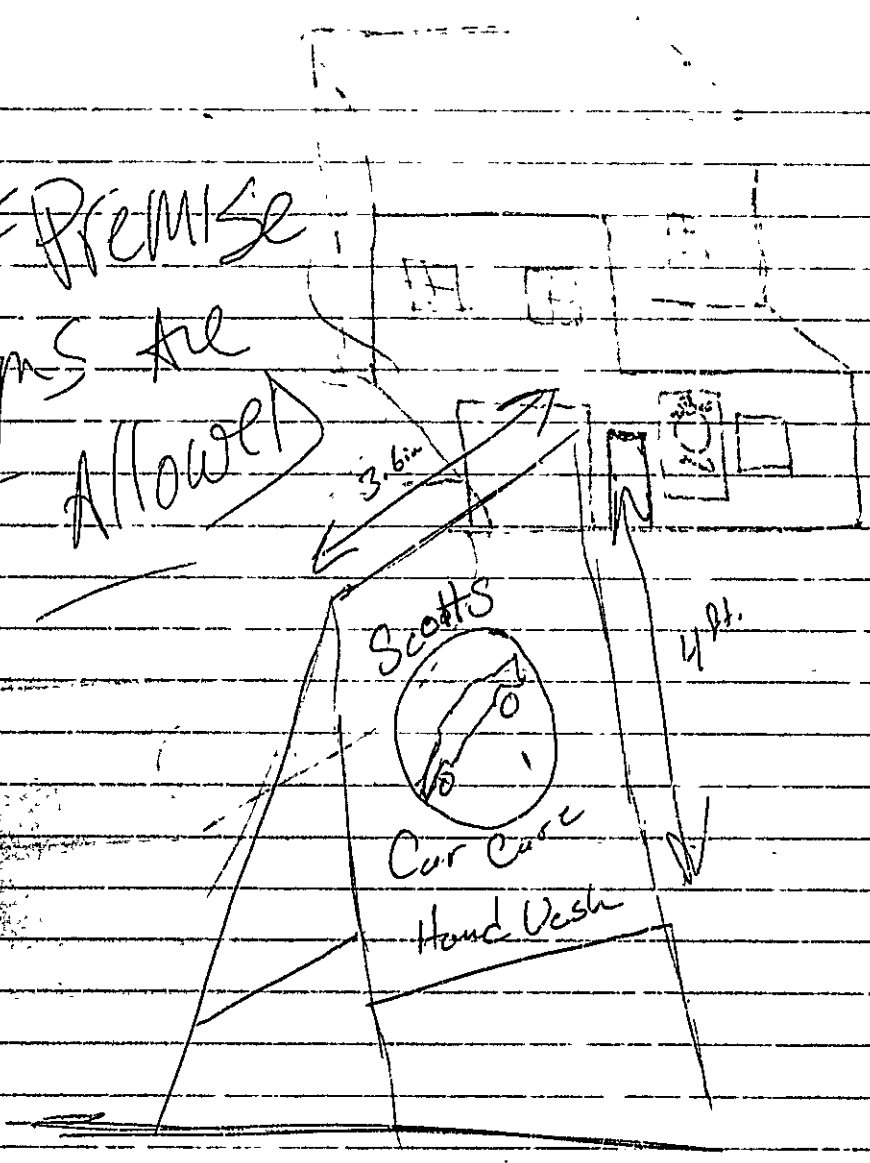 Premise
Are
Allowed
3.6in
4 ft.
Scotts
Car Care
Hand Wash